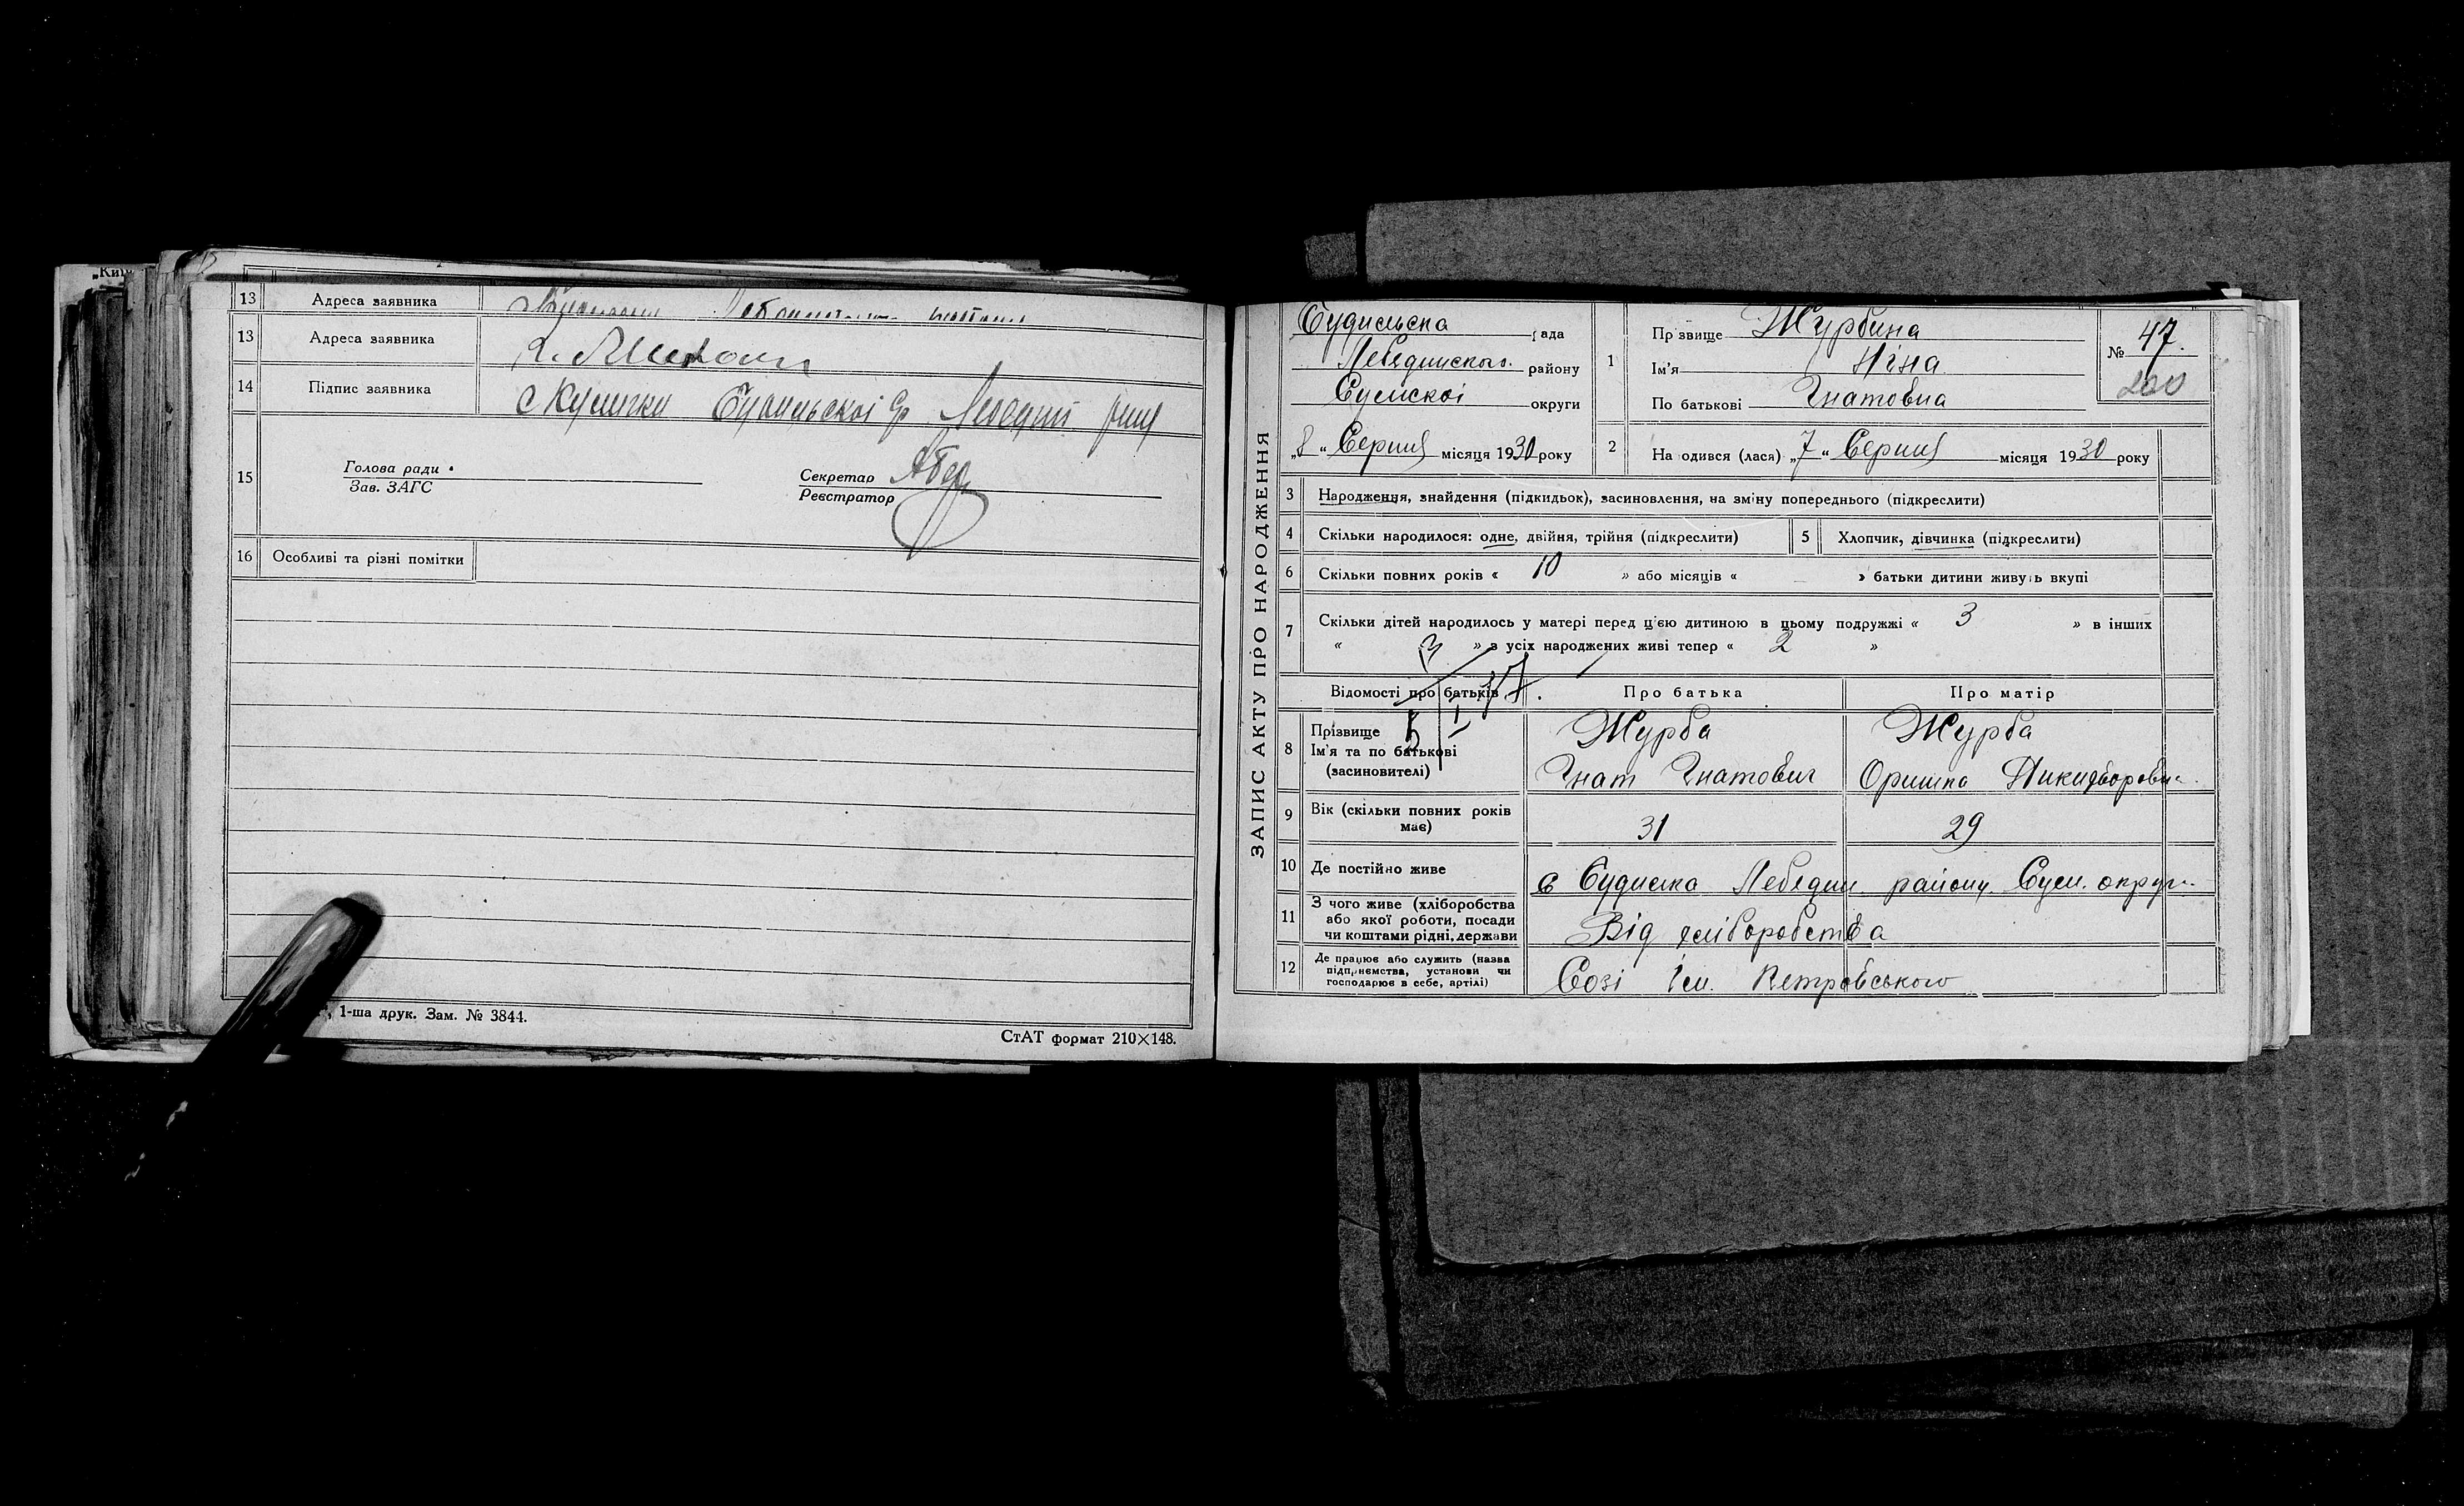 13 Адреса заявника
13 Адреса заявника
14 Підпис заявника с Кулички Будильської Лебедин
15 Голова ради Зав. ЗАГС Секретар Реєстратор
16 Особливі та різні помітки
1-ша друк. Зам. № 3844.
СтАТ формат 210×148.
ЗАПИС АКТУ ПРО НАРОДЖЕННЯ
Будильска рада
Лебединског. району
Сумскоі округи
„8“ Серпня місяця 1930 року
1 Прізвище Журбина
Ім'я Ніна
По батькові Гнатовна
№ 47.
200
2 На одився (лася) „7“ Серпня місяця 1930 року
3 Народження, знайдення (підкидьок), засиновлення, на зміну попереднього (підкреслити)
4 Скільки народилося: одне, двійня, трійня (підкреслити) 5 Хлопчик, дівчинка (підкреслити)
6 Скільки повних років « 10 » або місяців « — » батьки дитини живуть вкупі
7 Скільки дітей народилось у матері перед цією дитиною в цьому подружжі « 3 » в інших
« 3 » з усіх народжених живі тепер « 2 »
Відомості про батьків Про батька Про матір
8 Прізвище Журба Журба
Ім'я та по батькові Гнат Гнатович Оришка Никифоровн
(засиновителі)
9 Вік (скільки повних років має) 31 29
10 Де постійно живе с Будилка Лебедин. району. Сум. округи
11 З чого живе (хліборобства або якої роботи, посади чи коштами рідні, держави Від хліборобства
12 Де працює або служить (назва підприємства, установи чи господарює в себе, артілі) Созі Ім. Петровського